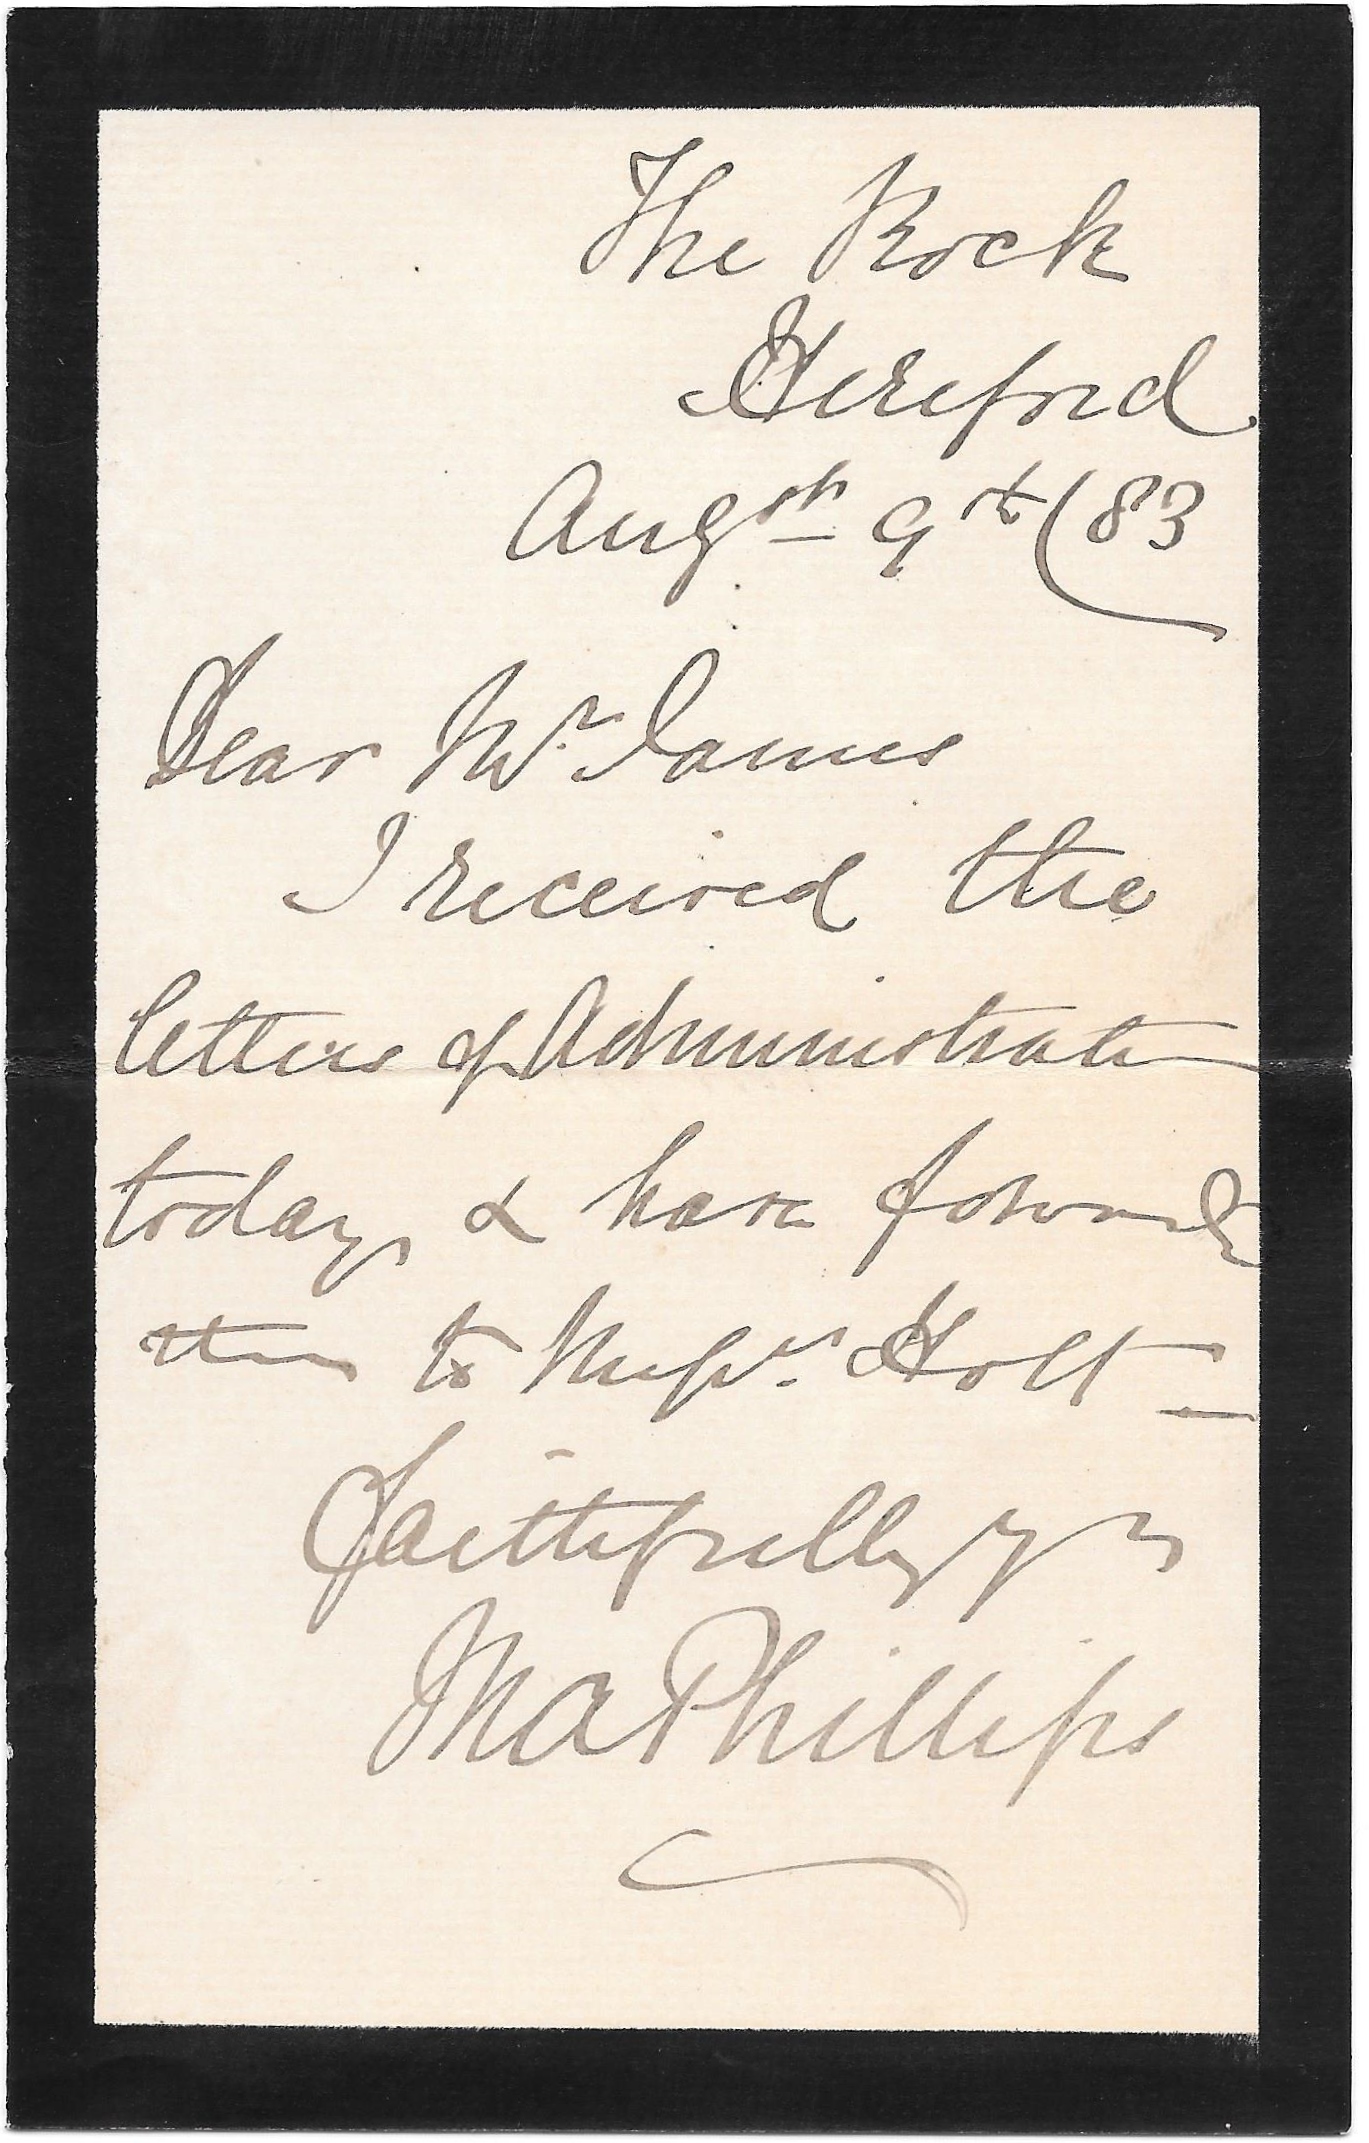 The Rock
Hereford
Augst 9th /83
Dear Mr. James
I received the
letters of Administration
today, & have forwarded
them to Messrs. Holt
Faithfully yrs
M A Phillips